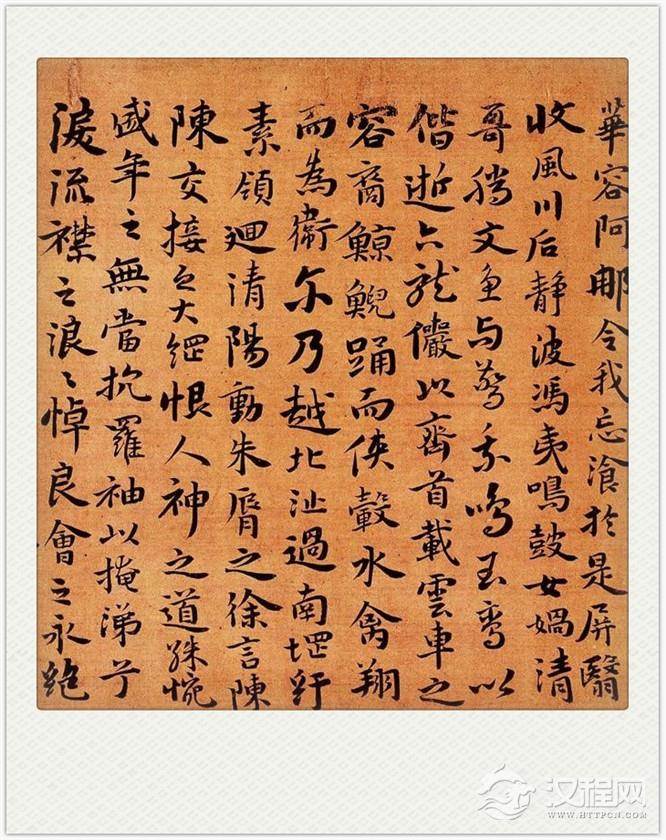 華容阿郍令我忘飡於是屏翳
收風川后靜波馮夷鳴鼓女媧清
哥騰文魚与警乘鳴玉鸞以
偕逝六龍儼以齊首載雲車之
容裔鯨鯢踊而俠轂水禽翔
而為衛尒乃越北沚過南堽紆
素領迴清陽動朱脣之徐言陳
陳交接之大綱恨人神之道殊惋
盛年之無當抗羅袖以掩涕兮
淚流襟之浪〻悼良會之永絕
汉程网
WWW.HTTPCN.COM